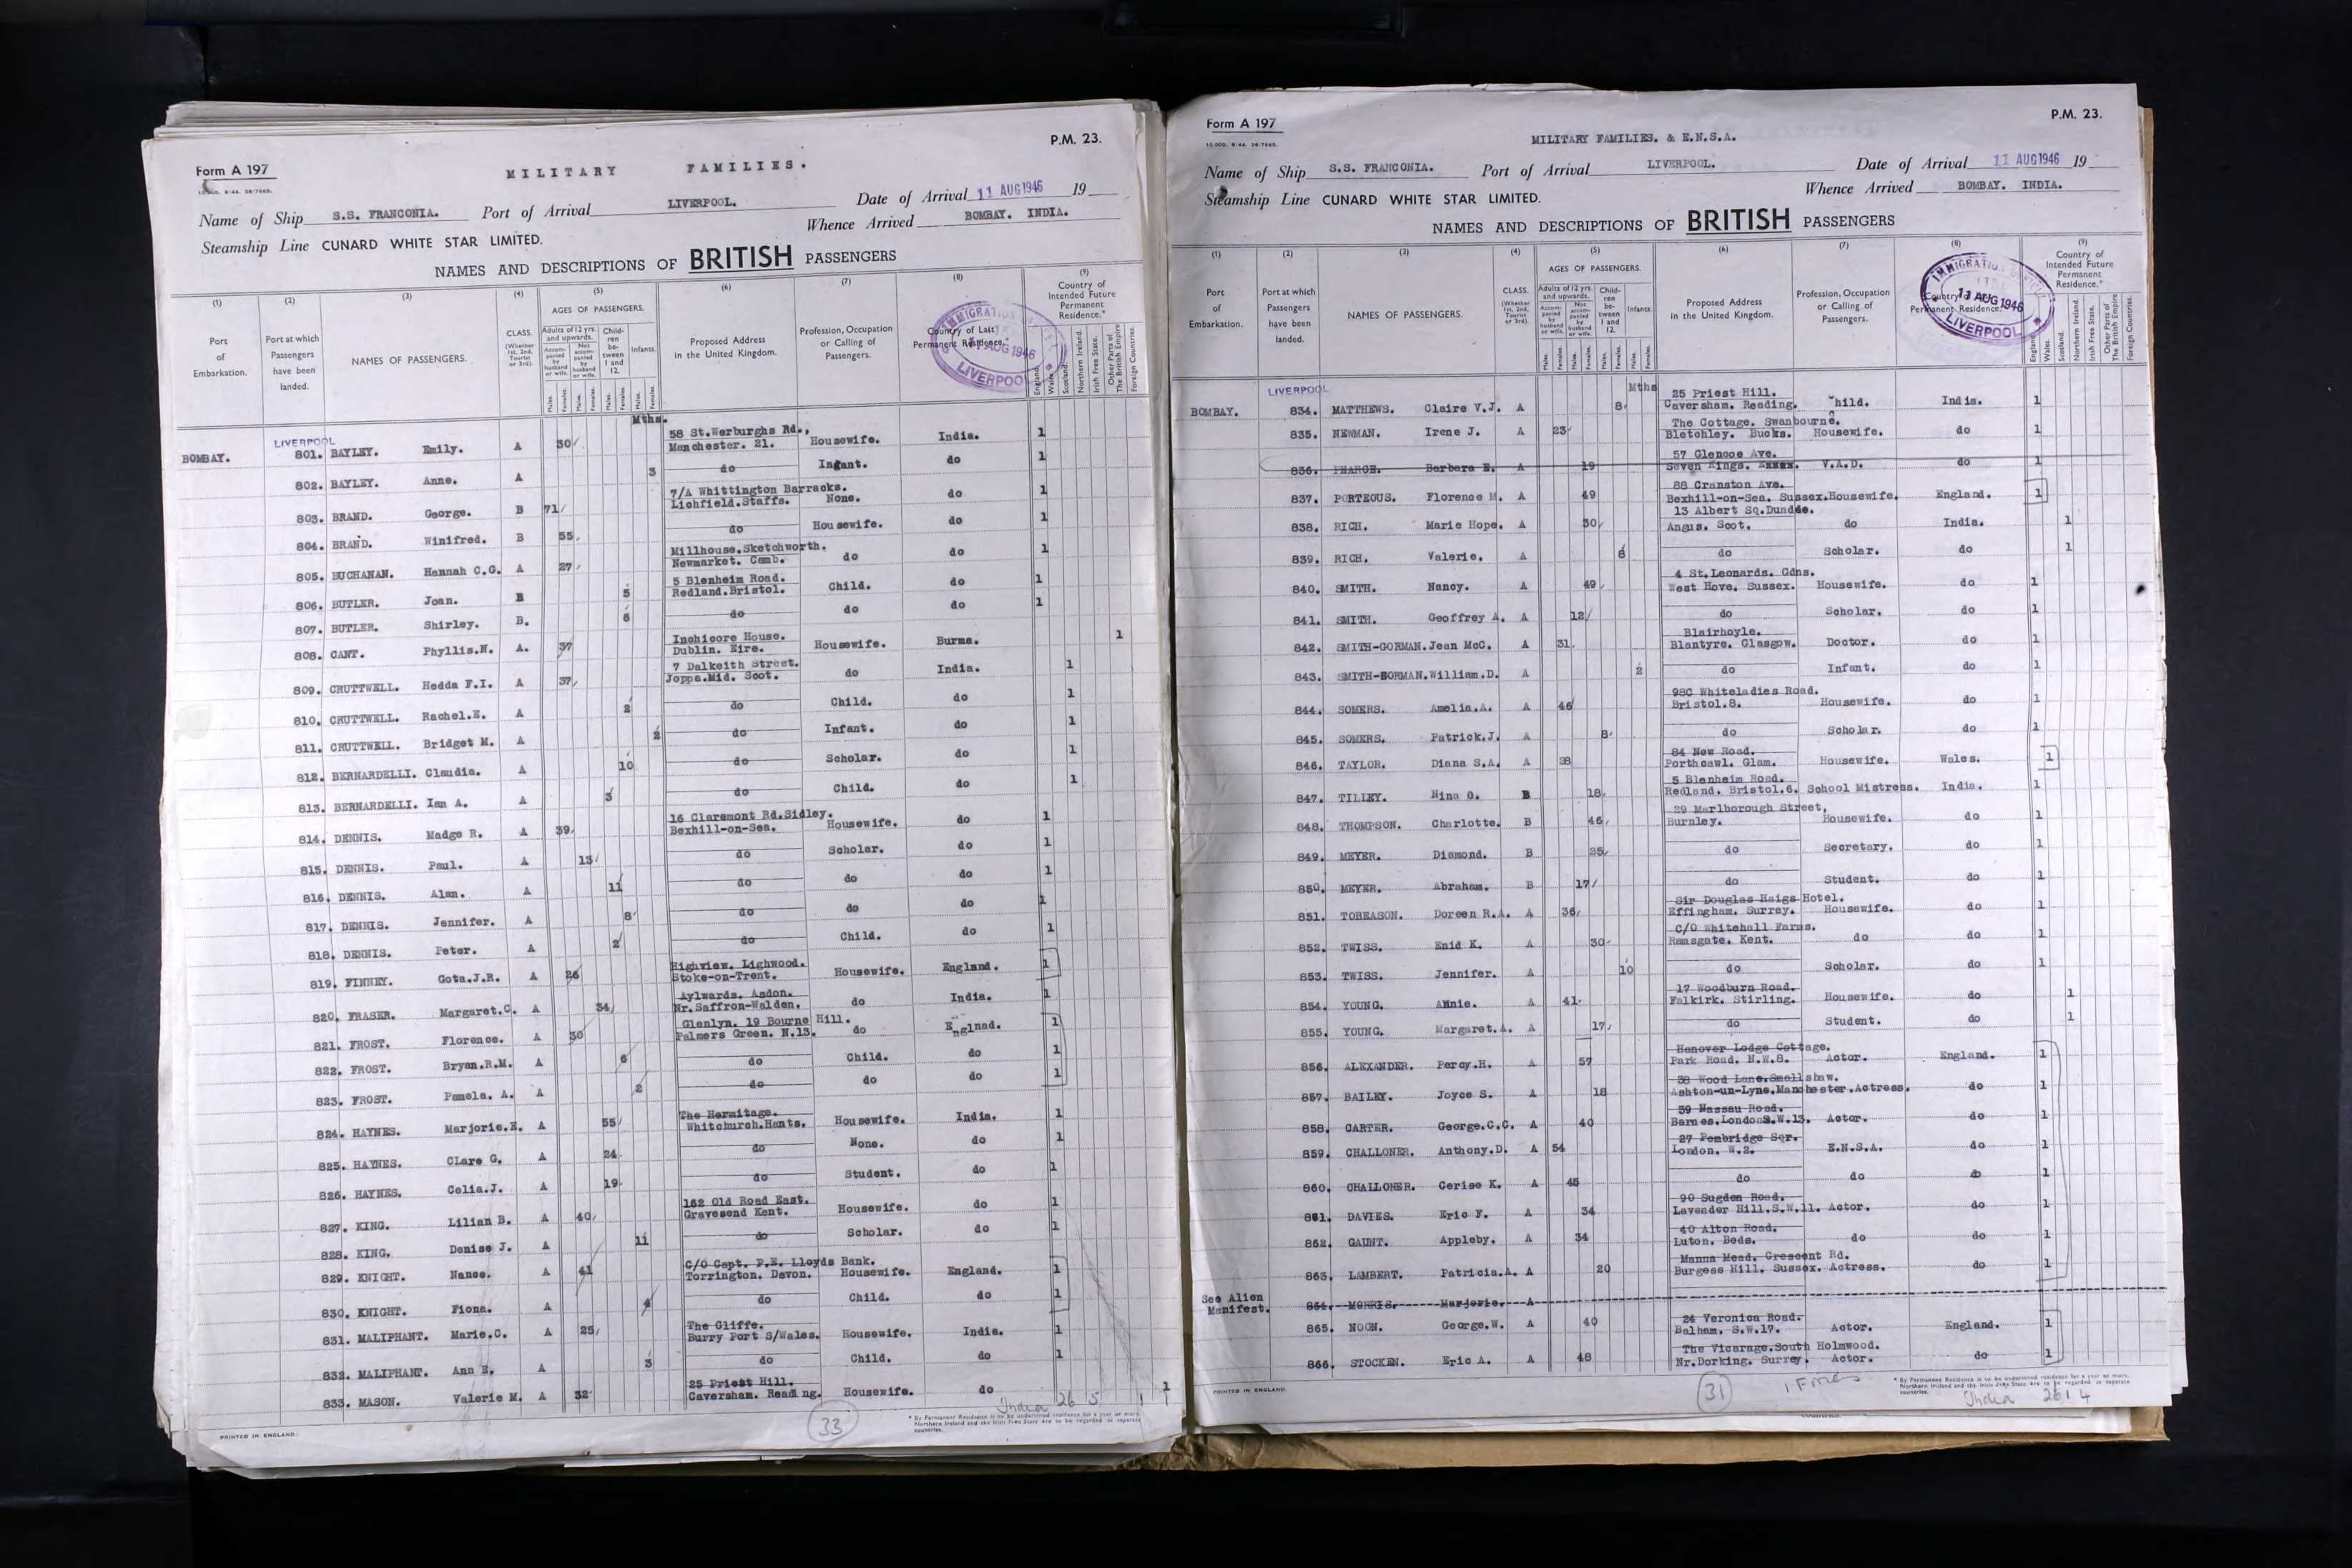 P.M. 23.
Form A 197
MILITARY FAMILIES.
Name of Ship S.S. FRANCONIA. Port of Arrival LIVERPOOL. Date of Arrival 11 AUG 1946 19
Whence Arrived BOMBAY. INDIA.
Steamship Line CUNARD WHITE STAR LIMITED.
NAMES AND DESCRIPTIONS OF BRITISH PASSENGERS
(1) (2) (3) (4) (5) (6) (7) (8) (9)
Port of Embarkation.
Port at which Passengers have been landed.
NAMES OF PASSENGERS.
CLASS. (Whether 1st, 2nd, Tourist or 3rd).
AGES OF PASSENGERS.
Adults of 12 yrs. and upwards.
Accompanied by husband or wife.
Not accompanied by husband or wife.
Children between 1 and 12.
Infants.
Males. Females. Males. Females. Males. Females. Males. Females.
Proposed Address in the United Kingdom.
Profession, Occupation or Calling of Passengers.
Country of Last Permanent Residence.*
Country of Intended Future Permanent Residence.*
England. Wales. Scotland. Northern Ireland. Irish Free State. Other Parts of The British Empire. Foreign Countries.
IMMIGRATION
11 AUG 1946
LIVERPOOL
Mths.
LIVERPOOL
BOMBAY. 801. BAYLEY. Emily. A 30 58 St.Werburghs Rd., Manchester. 21. Housewife. India. 1
802. BAYLEY. Anne. A 3 do Infant. do 1
803. BRAND. George. B 71 7/A Whittington Barracks. Lichfield.Staffs. None. do 1
804. BRAND. Winifred. B 55 do Housewife. do 1
805. BUCHANAN. Hannah C.G. A 27 Millhouse.Sketchworth. Newmarket. Camb. do do 1
806. BUTLER. Joan. B 5 5 Blenheim Road. Redland.Bristol. Child. do 1
807. BUTLER. Shirley. B. 6 do do do 1
808. CANT. Phyllis.N. A. 37 Inchicore House. Dublin. Eire. Housewife. Burma. 1
809. CRUTTWELL. Hedda F.I. A 37 7 Dalkeith Street. Joppa.Mid. Scot. do India. 1
810. CRUTTWELL. Rachel.E. A 2 do Child. do 1
811. CRUTTWELL. Bridget M. A 2 do Infant. do 1
812. BERNARDELLI. Claudia. A 10 do Scholar. do 1
813. BERNARDELLI. Ian A. A 3 do Child. do 1
814. DENNIS. Madge R. A 39 16 Claremont Rd.Sidley. Bexhill-on-Sea. Housewife. do 1
815. DENNIS. Paul. A 13 do Scholar. do 1
816. DENNIS. Alan. A 11 do do do 1
817. DENNIS. Jennifer. A 8 do do do 1
818. DENNIS. Peter. A 2 do Child. do 1
819. FINNEY. Gota.J.R. A 26 Highview. Lighwood. Stoke-on-Trent. Housewife. England. 1
820. FRASER. Margaret.C. A 34 Aylwards. Asdon. Nr.Saffron-Walden. do India. 1
821. FROST. Florence. A 30 Glenlyn. 19 Bourne Hill. Palmers Green. N.13. do Englnad. 1
822. FROST. Bryan.R.M. A 6 do Child. do 1
823. FROST. Pamela. A. A 2 do do do 1
824. HAYNES. Marjorie.E. A 55 The Hermitage. Whitchurch.Hants. Housewife. India. 1
825. HAYNES. CLare G. A 24 do None. do 1
826. HAYNES. Celia.J. A 19 do Student. do 1
827. KING. Lilian B. A 40 162 Old Road East. Gravesend Kent. Housewife. do 1
828. KING. Denise J. A 11 do Scholar. do 1
829. KNIGHT. Nance. A 41 C/O Capt. P.E. Lloyds Bank. Torrington. Devon. Housewife. England. 1
830. KNIGHT. Fiona. A 4 do Child. do 1
831. MALIPHANT. Marie.C. A 25 The Cliffe. Burry Port S/Wales. Housewife. India. 1
832. MALIPHANT. Ann E. A 3 do Child. do 1
833. MASON. Valerie M. A 32 25 Priest Hill. Caversham. Reading. Housewife. do 1
India 26 5 1 1
33
* By Permanent Residence is to be understood residence for a year or more. Northern Ireland and the Irish Free State are to be regarded as separate countries.
PRINTED IN ENGLAND.
P.M. 23.
Form A 197
MILITARY FAMILIES. & E.N.S.A.
Name of Ship S.S. FRANCONIA. Port of Arrival LIVERPOOL. Date of Arrival 11 AUG 1946 19
Whence Arrived BOMBAY. INDIA.
Steamship Line CUNARD WHITE STAR LIMITED.
NAMES AND DESCRIPTIONS OF BRITISH PASSENGERS
(1) (2) (3) (4) (5) (6) (7) (8) (9)
Port of Embarkation.
Port at which Passengers have been landed.
NAMES OF PASSENGERS.
CLASS. (Whether 1st, 2nd, Tourist or 3rd).
AGES OF PASSENGERS.
Adults of 12 yrs. and upwards.
Accompanied by husband or wife.
Not accompanied by husband or wife.
Children between 1 and 12.
Infants.
Males. Females. Males. Females. Males. Females. Males. Females.
Proposed Address in the United Kingdom.
Profession, Occupation or Calling of Passengers.
Country of Permanent Residence.*
Country of Intended Future Permanent Residence.*
England. Wales. Scotland. Northern Ireland. Irish Free State. Other Parts of The British Empire. Foreign Countries.
IMMIGRATION
11 AUG 1946
LIVERPOOL
Mths
LIVERPOOL
BOMBAY. 834. MATTHEWS. Claire V.J. A 8 25 Priest Hill. Caversham. Reading. Child. India. 1
835. NEWMAN. Irene J. A 23 The Cottage. Swanbourne. Bletchley. Bucks. Housewife. do 1
836. PEARCE. Barbara E. A 19 57 Glencoe Ave. Seven Kings. Essex. V.A.D. do 1
837. PORTEOUS. Florence M. A 49 88 Cranston Ave. Bexhill-on-Sea. Sussex. Housewife. England. 1
838. RICH. Marie Hope. A 30 13 Albert Sq.Dundde. Angus. Scot. do India. 1
839. RICH. Valerie. A 6 do Scholar. do 1
840. SMITH. Nancy. A 49 4 St.Leonards. Gdns. West Hove. Sussex. Housewife. do 1
841. SMITH. Geoffrey A. A 12 do Scholar. do 1
842. SMITH-GORMAN. Jean McC. A 31 Blairhoyle. Blantyre. Glasgow. Doctor. do 1
843. SMITH-GORMAN. William.D. A 2 do Infant. do 1
844. SOMERS. Amelia.A. A 46 98C Whiteladies Road. Bristol.8. Housewife. do 1
845. SOMERS. Patrick.J. A 8 do Scholar. do 1
846. TAYLOR. Diana S.A. A 28 84 New Road. Porthcawl. Glam. Housewife. Wales. 1
847. TILLEY. Nina O. B 18 5 Blenheim Road. Redland. Bristol.6. School Mistress. India. 1
848. THOMPSON. Charlotte. B 46 29 Marlborough Street, Burnley. Housewife. do 1
849. MEYER. Diamond. B 25 do Secretary. do 1
850. MEYER. Abraham. B 17 do Student. do 1
851. TOBEASON. Doreen R.A. A 36 Sir Douglas Haigs Hotel. Effingham. Surrey. Housewife. do 1
852. TWISS. Enid K. A 30 C/O Whitehall Farms. Ramsgate. Kent. do do 1
853. TWISS. Jennifer. A 10 do Scholar. do 1
854. YOUNG. Annie. A 41 17 Woodburn Road. Falkirk. Stirling. Housewife. do 1
855. YOUNG. Margaret.A. A 17 do Student. do 1
856. ALEXANDER. Percy.H. A 57 Hanover Lodge Cottage. Park Road. N.W.8. Actor. England. 1
857. BAILEY. Joyce S. A 18 58 Wood Lane.Smallshaw. Ashton-un-Lyne.Manchester. Actress. do 1
858. CARTER. George.C.C. A 40 39 Nassau Road. Barnes.LondonS.W.13. Actor. do 1
859. CHALLONER. Anthony.D. A 54 27 Pembridge Sqr. London. W.2. E.N.S.A. do 1
860. CHALLONER. Cerise K. A 45 do do do 1
861. DAVIES. Eric F. A 34 90 Sugden Road. Lavender Hill.S.W.11. Actor. do 1
862. GAUNT. Appleby. A 34 40 Alton Road. Luton. Beds. do do 1
863. LAMBERT. Patricia.A. A 20 Manna Mead. Crescent Rd. Burgess Hill. Sussex. Actress. do 1
See Alien Manifest. 864. MORRIS. Marjorie. A
865. NOON. George.W. A 40 24 Veronica Road. Balham. S.W.17. Actor. England. 1
866. STOCKEN. Eric A. A 48 The Vicarage.South Holmwood. Nr.Dorking. Surrey. Actor. do 1
31
India 26 1 4
* By Permanent Residence is to be understood residence for a year or more. Northern Ireland and the Irish Free State are to be regarded as separate countries.
PRINTED IN ENGLAND